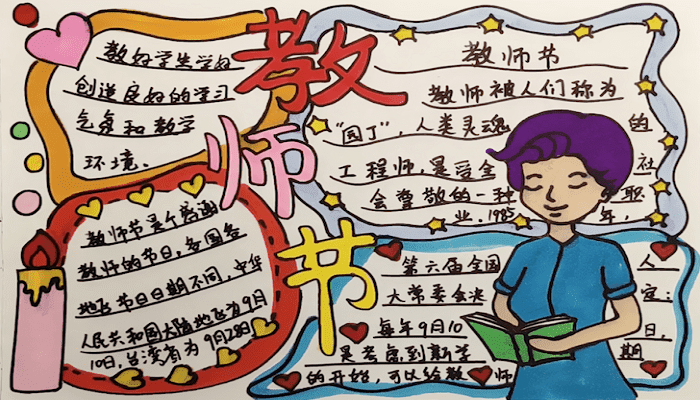 教师节
教好学生学好
创造良好的学习
气氛和教学
环境。
教师节
教师被人们称为
"园丁"，人类灵魂的
工程师，是受全社
会尊敬的一种职
业。1985年，
教师节是个感谢
教师的节日，各国各
地区节日日期不同，中华
人民共和国大陆地区为9月
10日，台湾省为9月28日。
第六届全国人
大常委会决定：
每年9月10日，
是考虑到新学期
的开始，可以给教师